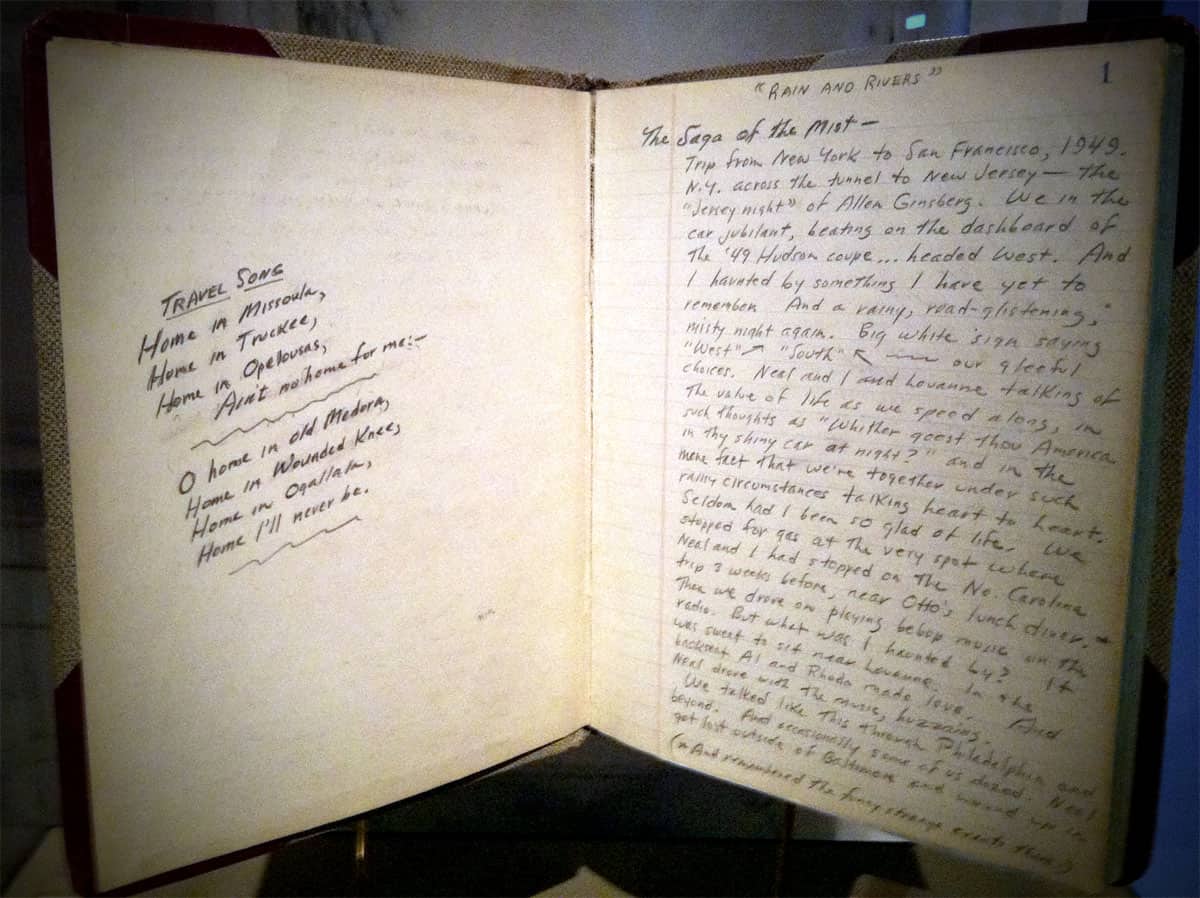 TRAVEL SONG
Home in Missoula,
Home in Truckee,
Home in Opelousas,
Ain't no home for me:—
O home in old Medora,
Home in Wounded Knee,
Home in Ogallala,
Home I'll never be.
1
"RAIN AND RIVERS"
The Saga of the Mist —
Trip from New York to San Francisco, 1949.
N.Y. across the tunnel to New Jersey — the
"Jersey night" of Allen Ginsberg. We in the
car jubilant, beating on the dashboard of
the '49 Hudson coupe... headed West. And
I haunted by something I have yet to
remember. And a rainy, road-glistening,
misty night again. Big white sign saying
"West" ↗ "South" ↖ our gleeful
choices. Neal and I and Louanne talking of
the value of life as we speed along, in
such thoughts as "Whither goest thou America
in thy shiny car at night?" and in the
mere fact that we're together under such
rainy circumstances talking heart to heart.
Seldom had I been so glad of life. We
stopped for gas at the very spot where
Neal and I had stopped on the No. Carolina
trip 3 weeks before, near Otto's lunch diner. *
Then we drove on playing bebop music on the
radio. But what was I haunted by? It
was sweet to sit near Louanne. In the
backseat Al and Rhoda made love. And
Neal drove with the music, huzzaing.
We talked like this through Philadelphia and
beyond. And occasionally some of us dozed. Neal
got lost outside of Baltimore and wound up in
(* And remembered the funny strange events there.)